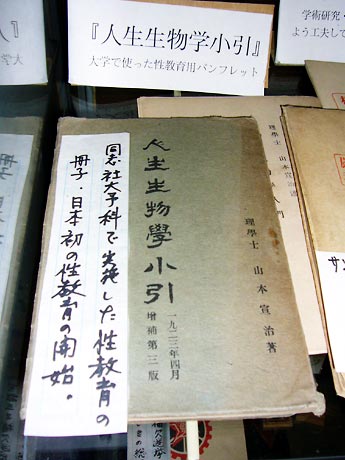 『人生生物学小引』
大学で使った性教育用パンフレット
学術研究・
よう工夫して
理學士 山本宣治著
入門
人生生物學小引
一九二三年四月
増補第三版
理學士 山本宣治著
同志社大予科で実施した性教育の
冊子・日本初の性教育の開始。
サン